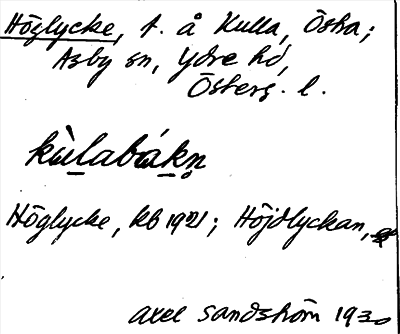 Höglycke, t. å Kulla, Östra;
Asby sn, Ydre hd,
Österg. l.
kùlabákn̥
Höglycke, kb 1921; Höjdlyckan,
Axel Sandström 1930